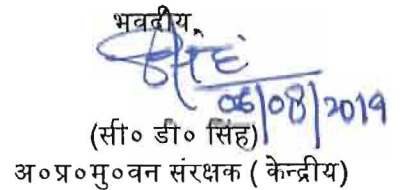 भवदीय,
सिंह
06/08/2019
(सी० डी० सिंह)
अ०प्र०मु०वन संरक्षक ( केन्द्रीय)